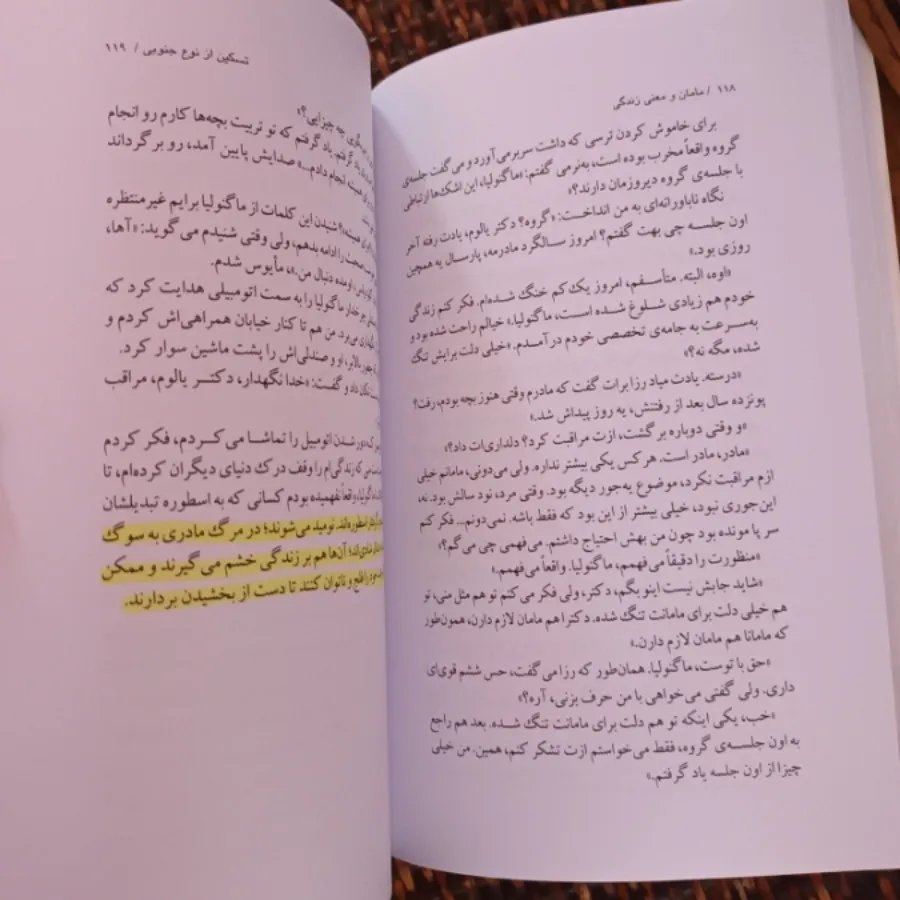 ۱۱۸ / مامان و معنی زندگی
برای خاموش کردن ترسی که داشت سربرمی‌آورد و می‌گفت جلسه‌ی
گروه واقعاً مخرب بوده است، به‌نرمی گفتم: «ماگنولیا، این اشک‌ها ارتباطی
با جلسه‌ی گروه دیروزمان دارند؟»
نگاه ناباورانه‌ای به من انداخت: «گروه؟ دکتر یالوم، یادت رفته آخر
اون جلسه چی بهت گفتم؟ امروز سالگرد مادرمه، پارسال یه همچین
روزی بود.»
«اوه، البته. متأسفم، امروز یک کم خنگ شده‌ام. فکر کنم زندگی
خودم هم زیادی شلوغ شده است، ماگنولیا.» خیالم راحت شده بود و
به‌سرعت به جامه‌ی تخصصی خودم درآمدم. «خیلی دلت برایش تنگ
شده، مگه نه؟»
«درسته. یادت میاد رزا برات گفت که مادرم وقتی هنوز بچه بودم، رفت؟
پونزده سال بعد از رفتنش، یه روز پیداش شد.»
«و وقتی دوباره برگشت، ازت مراقبت کرد؟ دلداری‌ات داد؟»
«مادر، مادر است. هر کس یکی بیشتر نداره. ولی می‌دونی، مامانم خیلی
ازم مراقبت نکرد، موضوع یه‌جور دیگه بود. وقتی مرد، نود سالش بود. نه،
این‌جوری نبود، خیلی بیشتر از این بود که فقط باشه. نمی‌دونم... فکر کنم
سر پا مونده بود چون من بهش احتیاج داشتم. می‌فهمی چی می‌گم؟»
«منظورت را دقیقاً می‌فهمم، ماگنولیا. واقعاً می‌فهمم.»
«شاید جابش نیست اینو بگم، دکتر، ولی فکر می‌کنم تو هم مثل منی، تو
هم خیلی دلت برای مامانت تنگ شده. دکترا هم مامان لازم دارن، همون‌طور
که مامانا هم مامان لازم دارن.»
«حق با توست، ماگنولیا. همان‌طور که رزا می‌گفت، حس ششم قوی‌ای
داری. ولی گفتی می‌خواهی با من حرف بزنی، آره؟»
«خب، یکی اینکه تو هم دلت برای مامانت تنگ شده. بعد هم راجع
به اون جلسه‌ی گروه، فقط می‌خواستم ازت تشکر کنم، همین. من خیلی
چیزا از اون جلسه یاد گرفتم.»
تسکین از نوع جنوبی / ۱۱۹
چه چیزایی؟»
یاد گرفتم که تو تربیت بچه‌ها کارم رو انجام
همیشه انجام دادم...» صدایش پایین آمد، رو برگرداند
همیشه؟ شنیدن این کلمات از ماگنولیا برایم غیرمنتظره
صحبت را ادامه بدهم، ولی وقتی شنیدم می‌گوید: «آها،
اومده دنبال من.»، مأیوس شدم.
ماگنولیا را به سمت اتومبیلی هدایت کرد که
می‌برد. من هم تا کنار خیابان همراهی‌اش کردم و
او و صندلی‌اش را پشت ماشین سوار کرد.
تکان داد و گفت: «خدا نگهدار، دکتر یالوم، مراقب
دور شدن اتومبیل را تماشا می‌کردم، فکر کردم
که زندگی‌ام را وقف درک دنیای دیگران کرده‌ام، تا
واقعاً نفهمیده بودم کسانی که به اسطوره تبدیلشان
نومید می‌شوند؛ در مرگ مادری به سوگ
آن‌ها هم بر زندگی خشم می‌گیرند و ممکن
را فلج و ناتوان کنند تا دست از بخشیدن بردارند.